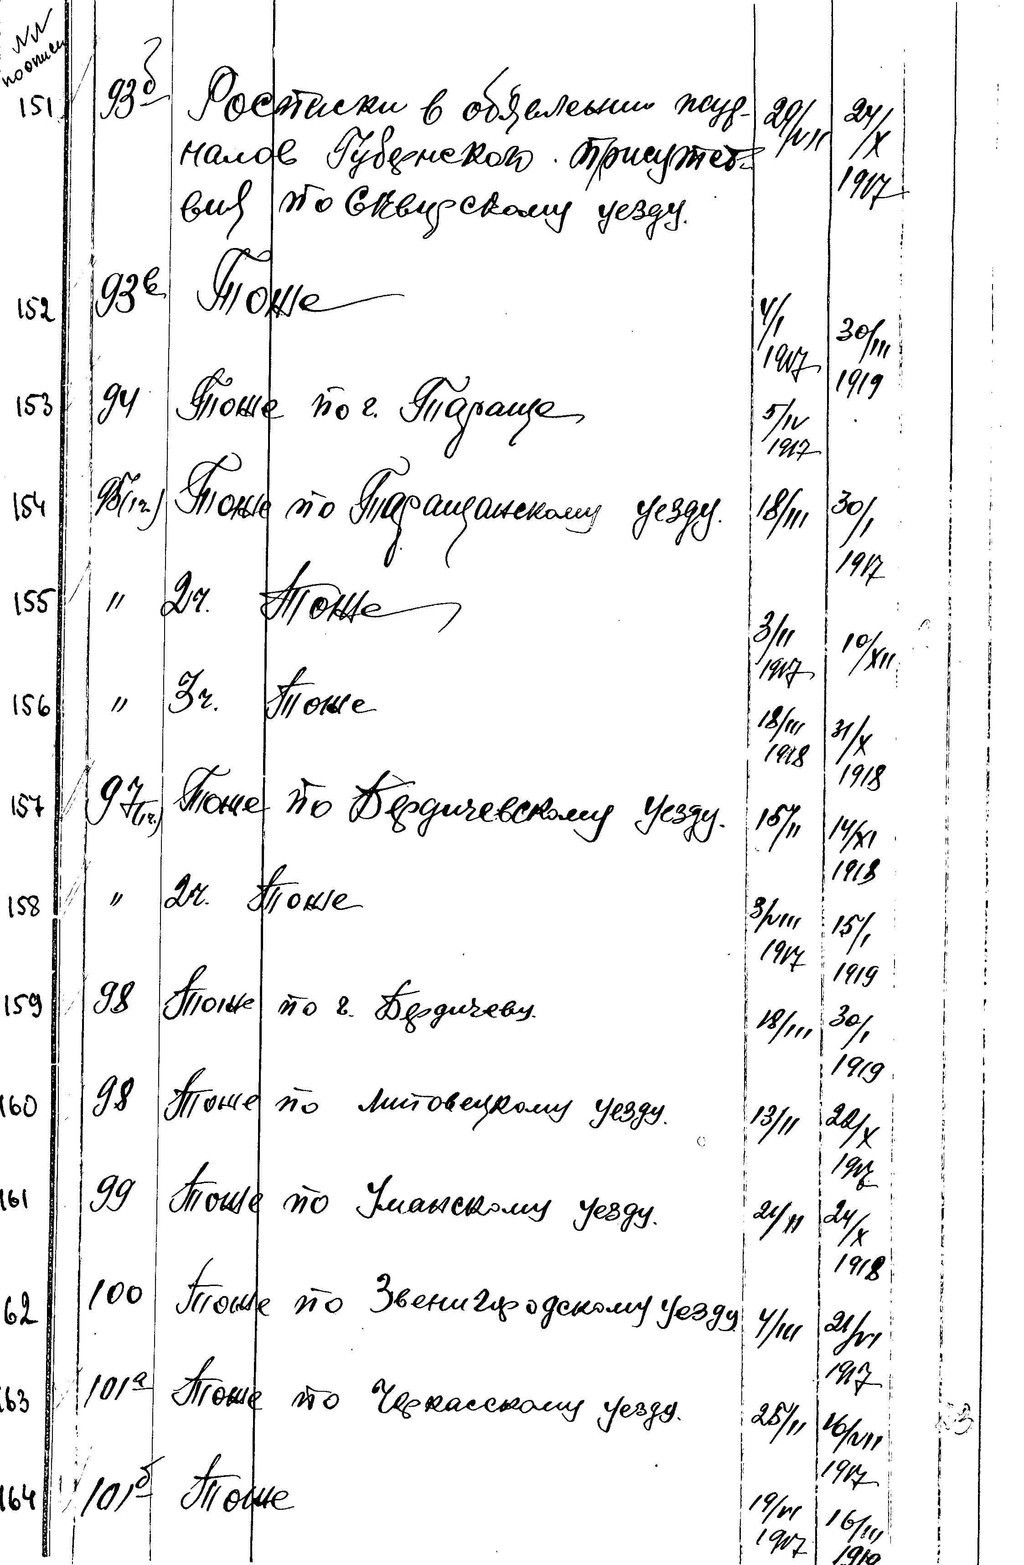 NN
по описи
151 93б Расписки в объявлении жур- 29/VII 24/X
налов Губернского присутст-
вия по Сквирскому уезду. 1917
152 93в Тоже 4/I 1917 30/III 1919
153 94 Тоже по г. Тараще 5/IV 1917
154 95(1ч.) Тоже по Таращанскому уезду. 18/III 30/I 1917
155 " 2ч. Тоже 3/II 1917 10/XII
156 " 3ч. Тоже 18/III 1918 31/X 1918
157 97(1ч.) Тоже по Бердичевскому уезду. 15/II 14/XI 1918
158 " 2ч. Тоже 3/VIII 1917 15/I 1919
159 98 Тоже по г. Бердичеву. 18/III 30/I 1919
160 98 Тоже по Липовецкому уезду. 13/II 22/X
161 99 Тоже по Уманскому уезду. 21/II 24/X 1918
62 100 Тоже по Звенигородскому уезду 4/III 21/VI 1917
63 101а Тоже по Черкасскому уезду. 25/II 16/VII 1917
164 101б Тоже 19/VI 1917 16/III